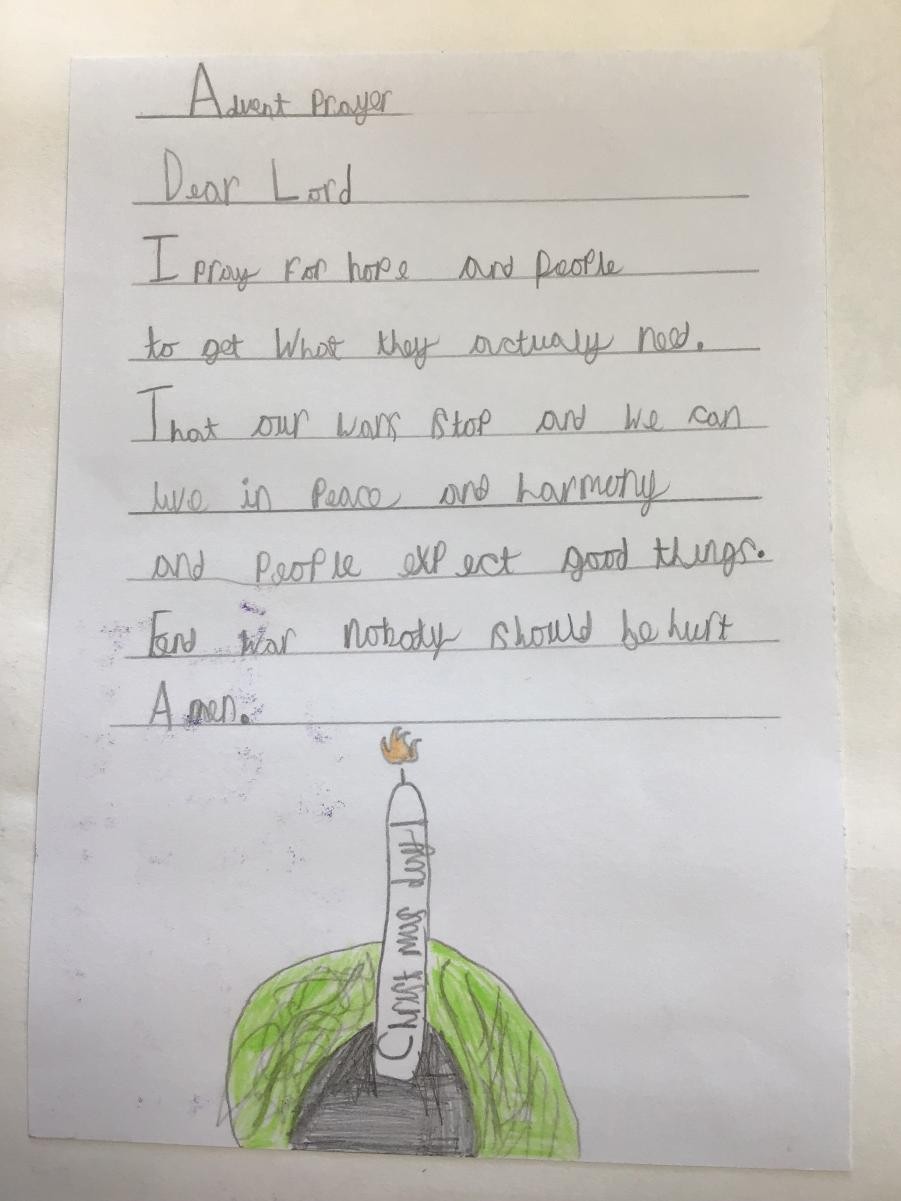 Advent Prayer
Dear Lord
I pray for hope and people
to get what they actualy need.
That our wars stop and we can
live in peace and harmony
and people expect good things.
End war nobody should be hurt
Amen.
Christmas day!